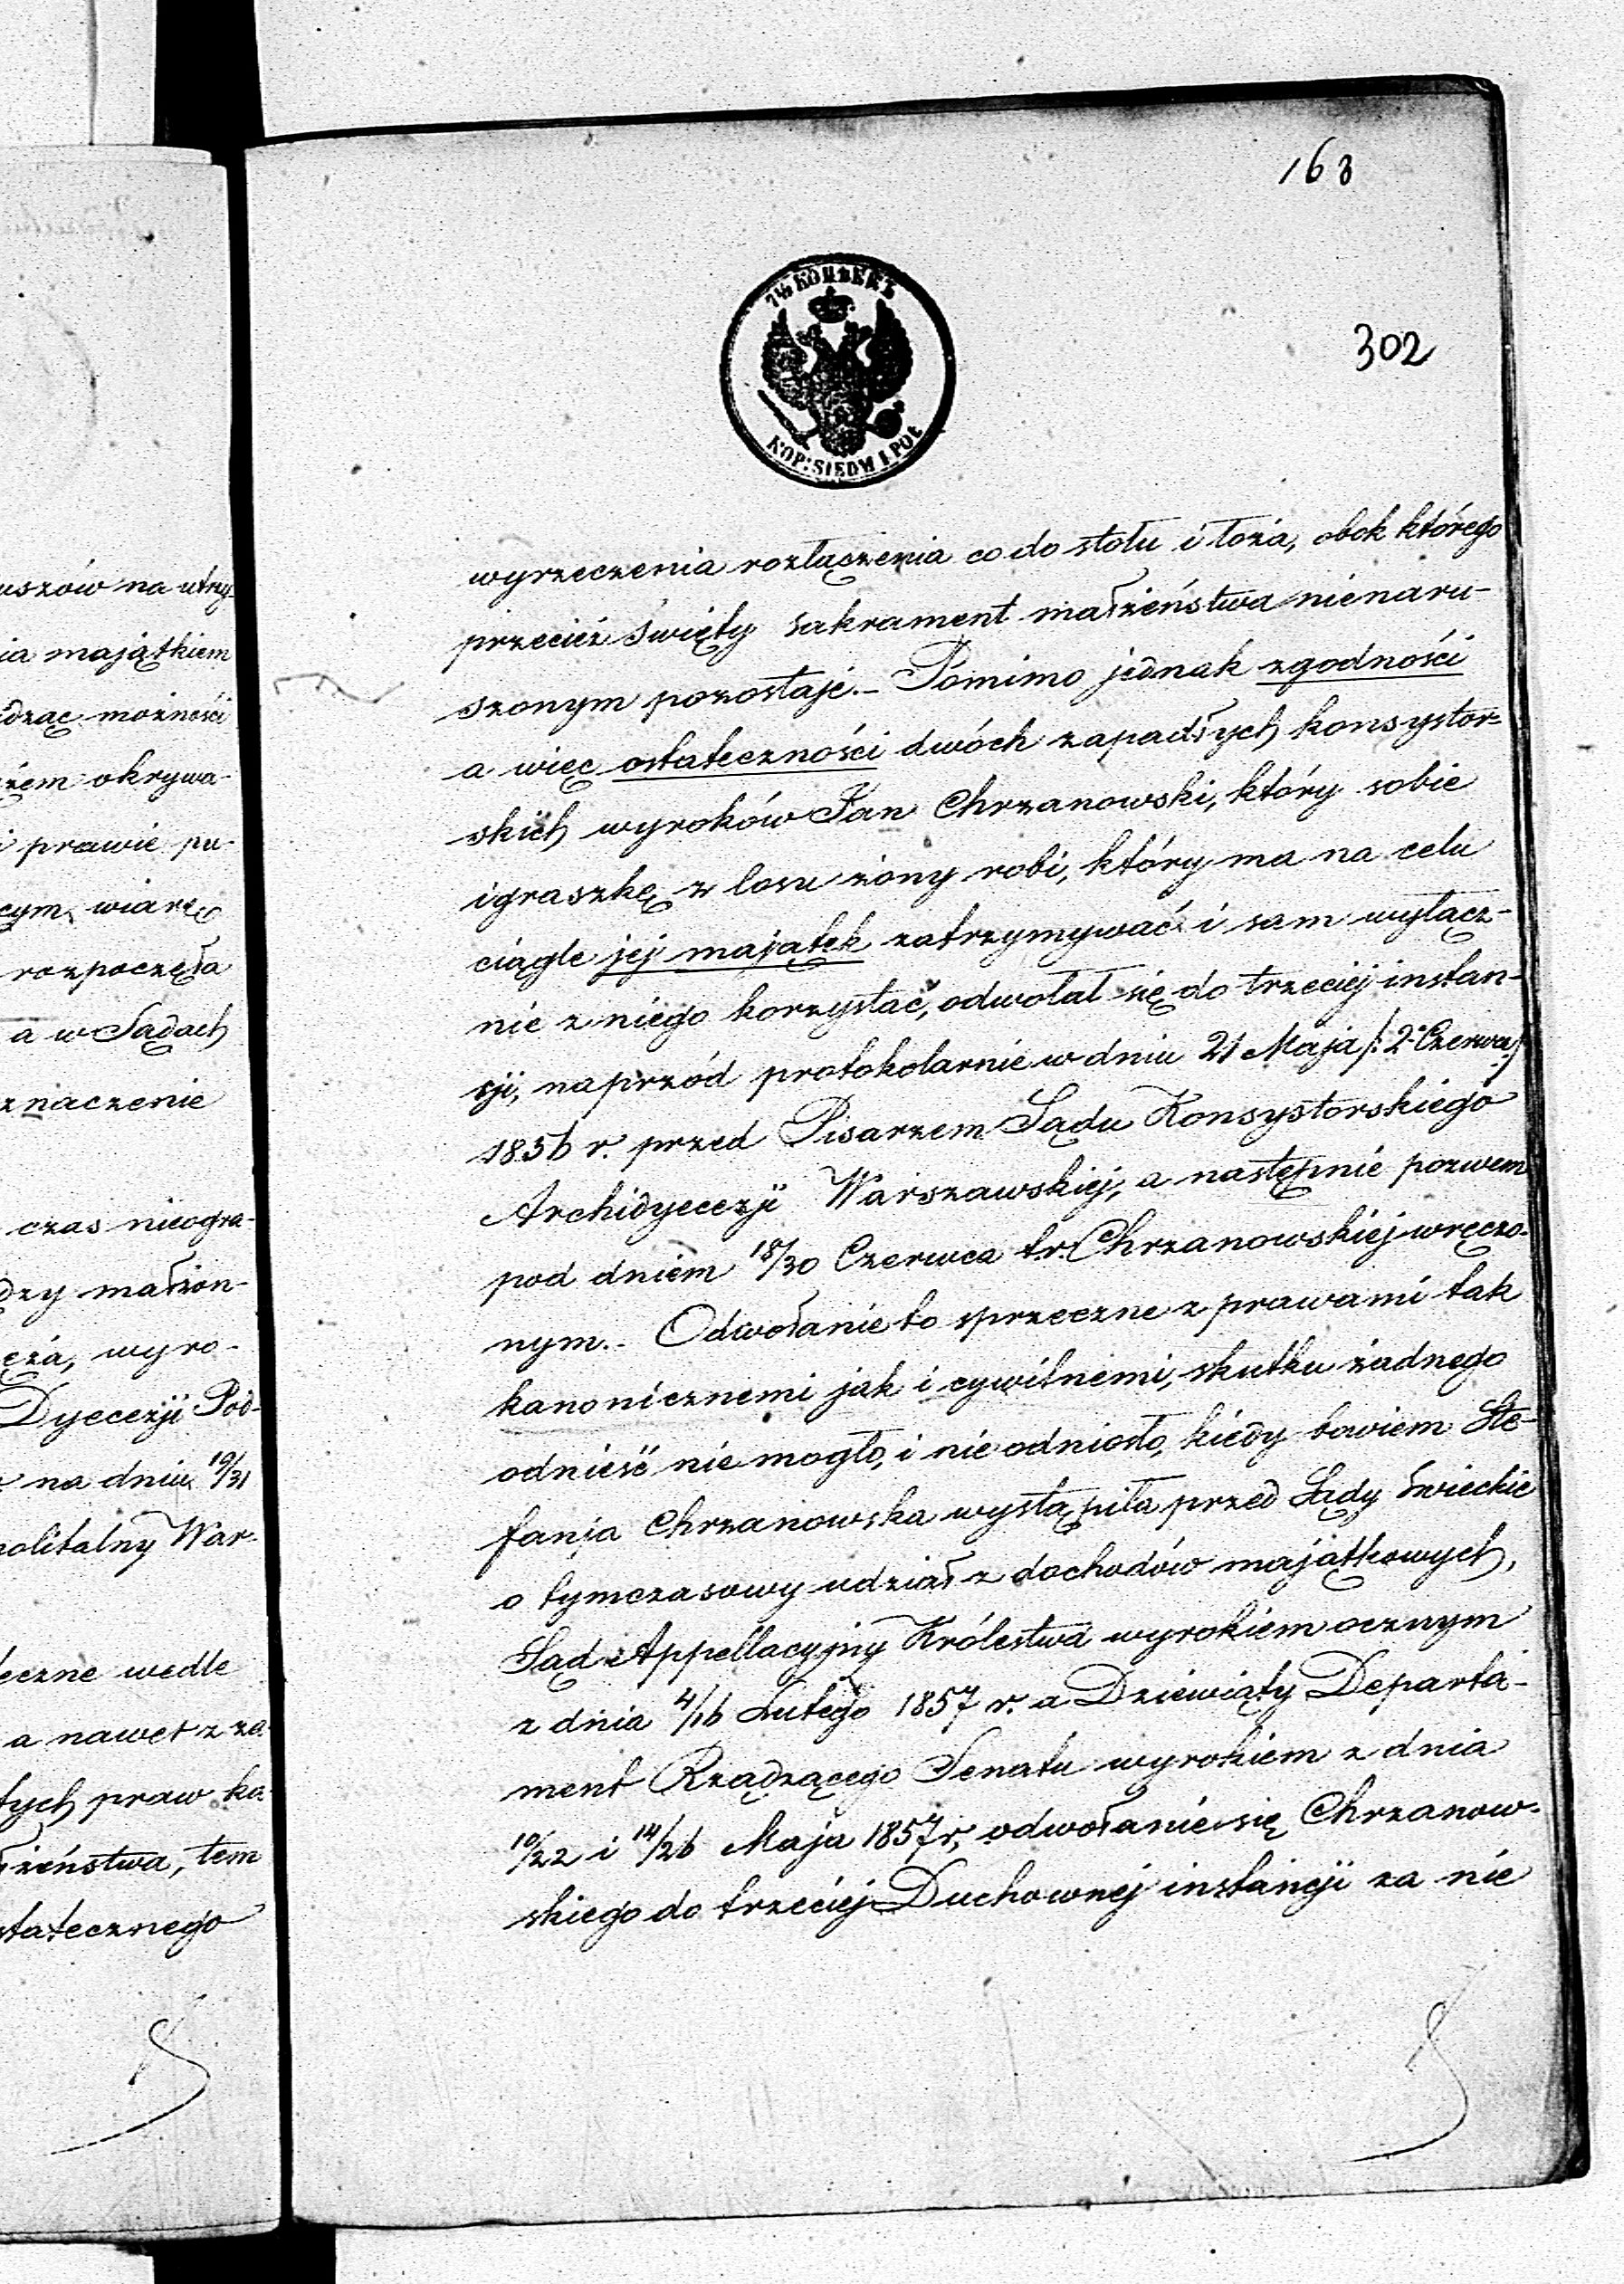 163
7½ КОПѢЕКЪ
KOP: SIEDM I POŁ
302
wyrzeczenia rozłączenia co do stołu i łoża, obok którego
przecież święty sakrament małżeństwa nienaru-
szonym pozostaje.- Pomimo jednak zgodności
a więc ostateczności dwóch zapadłych konsystor-
skich wyroków Jan Chrzanowski, który sobie
igraszkę z losu żony robi, który ma na celu
ciągle jej majątek zatrzymywać i sam wyłącz-
nie z niego korzystać, odwołał się do trzeciej instan-
cji, naprzód protokolarnie w dniu 21 Maja /:2 Czerwca:/
1856 r. przed Pisarzem Sądu Konsystorskiego
Archidyecezji Warszawskiej, a następnie pozwem
pod dniem 18/30 Czerwca t.r. Chrzanowskiej wręczo-
nym.- Odwołanie to sprzeczne z prawami tak
kanonicznemi jak i cywilnemi, skutku żadnego
odnieść nie mogło, i nie odniosło, kiedy bowiem Ste-
fanja Chrzanowska wystąpiła przed Sądy świeckie
o tymczasowy udział z dochodów majątkowych,
Sąd Appellacyjny Królestwa wyrokiem ocznym
z dnia 4/16 Lutego 1857 r. a Dziewiąty Departa-
ment Rządzącego Senatu wyrokiem z dnia
10/22 i 14/26 Maja 1857 r, odwołanie się Chrzanow-
skiego do trzeciej Duchownej instancji za nie
uszów na utrzy-
ia majątkiem
idząc możności
żem okrywa-
i prawie pu-
cym wiarę
rozpoczęła
a w Sądach
znaczenie
czas nieogra-
dzy małżon-
ęża, wyro-
Dyecezji Pod-
na dniu 19/31
politalny War-
teczne wedle
a nawet z za-
tych praw ka-
łżeństwa, tem
statecznego